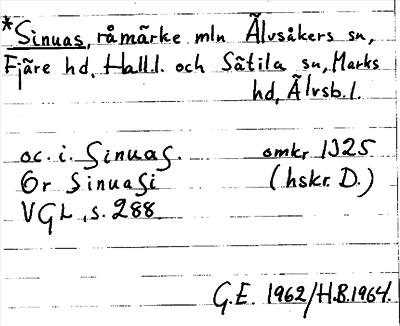 *Sinuas, råmärke mln Älvsåkers sn,
Fjäre hd, Hall.l. och Sätila sn, Marks
hd, Älvsb.l.
oc. i. Sinuas. omkr 1325
Or Sinuasi (hskr. D.)
VGL, s. 288
G.E. 1962/H.B.1964.